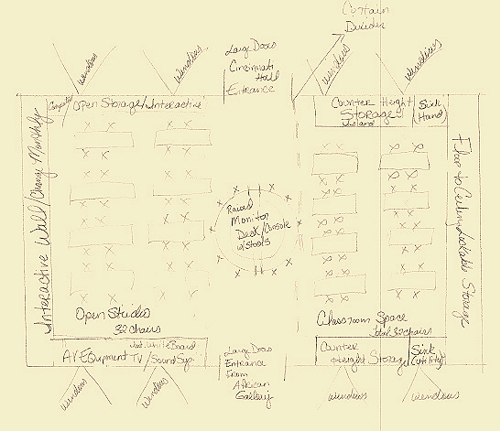 Curtain
Divider
windows
windows
Large Doors
Cincinnati
Hall
Entrance
windows
windows
Computer
Open Storage/Interactive
Counter Height
Storage
Island
Sink
(Hand)
Interactive Wall/Change Monthly
Floor to Ceiling Lockable Storage
Round
Monitor
Desk/Console
w/stools
Open Studio
32 chairs
Classroom Space
Total 32 chairs
White Board
AV Equipment TV/Sound Sys
Large Doors
Entrance
From
African
Gallery
Counter
Height Storage
Sink
(Utility)
windows
windows
windows
windows